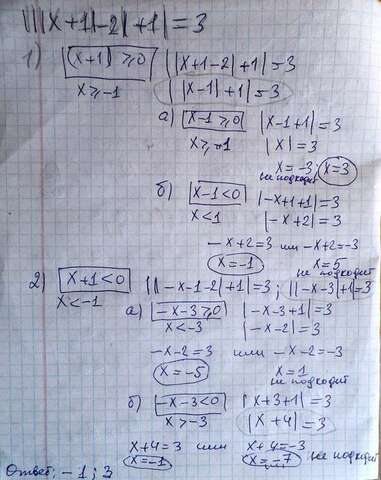 |||x+1|-2|+1|=3
1) |(x+1)|≥0 ||x+1-2|+1|=3
x≥-1 ||x-1|+1|=3
а) x-1≥0 |x-1+1|=3
x≥-1 |x|=3
x=-3; x=3
не подходит
б) x-1<0 |-x+1+1|=3
x<1 |-x+2|=3
-x+2=3 или -x+2=-3
x=-1 x=5
не подходит
2) x+1<0 ||-x-1-2|+1|=3; ||-x-3|+1|=3
x<-1
а) -x-3≥0 |-x-3+1|=3
x<-3 |-x-2|=3
-x-2=3 или -x-2=-3
x=-5 x=1
не подходит
б) -x-3<0 |x+3+1|=3
x>-3 |x+4|=3
x+4=3 или x+4=-3
x=-1 x=-7 не подходит
Ответ: -1; 3